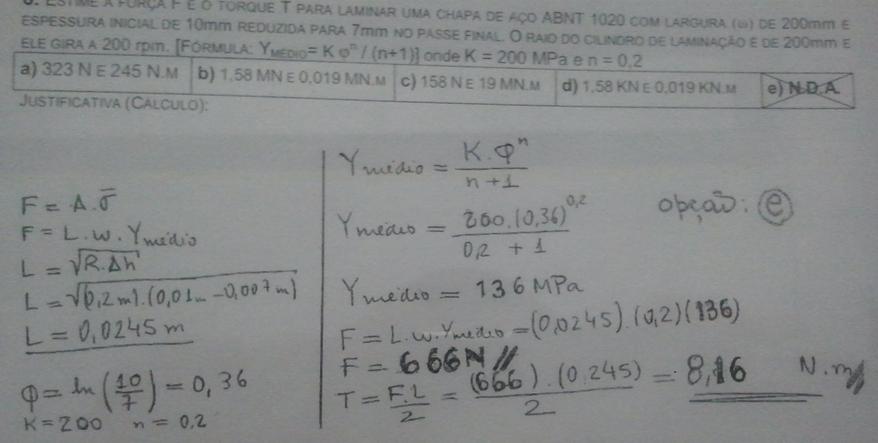 ESTIME A FORÇA F E O TORQUE T PARA LAMINAR UMA CHAPA DE AÇO ABNT 1020 COM LARGURA (ω) DE 200mm E
ESPESSURA INICIAL DE 10mm REDUZIDA PARA 7mm NO PASSE FINAL. O RAIO DO CILINDRO DE LAMINAÇÃO É DE 200mm E
ELE GIRA A 200 rpm. [FÓRMULA: YMÉDIO= K φⁿ / (n+1)] onde K = 200 MPa e n = 0,2
a) 323 N E 245 N.M b) 1,58 MN E 0,019 MN.M c) 158 N E 19 MN.M d) 1,58 KN E 0,019 KN.M e) N.D.A.
JUSTIFICATIVA (CÁLCULO):
F = A.σ̄
F = L.w.Ymédio
L = √R.Δh
L = √(0,2m).(0,01m - 0,007m)
L = 0,0245 m
φ = ln (10/7) = 0,36
K = 200 n = 0,2
Ymédio = K.φⁿ / n+1
Ymédio = 200.(0,36)^0,2 / 0,2 + 1
Ymédio = 136 MPa
F = L.w.Ymédio = (0,0245).(0,2)(136)
F = 666N //
T = F.L / 2 = (666).(0,245) / 2 = 8,16 N.m
opção: e